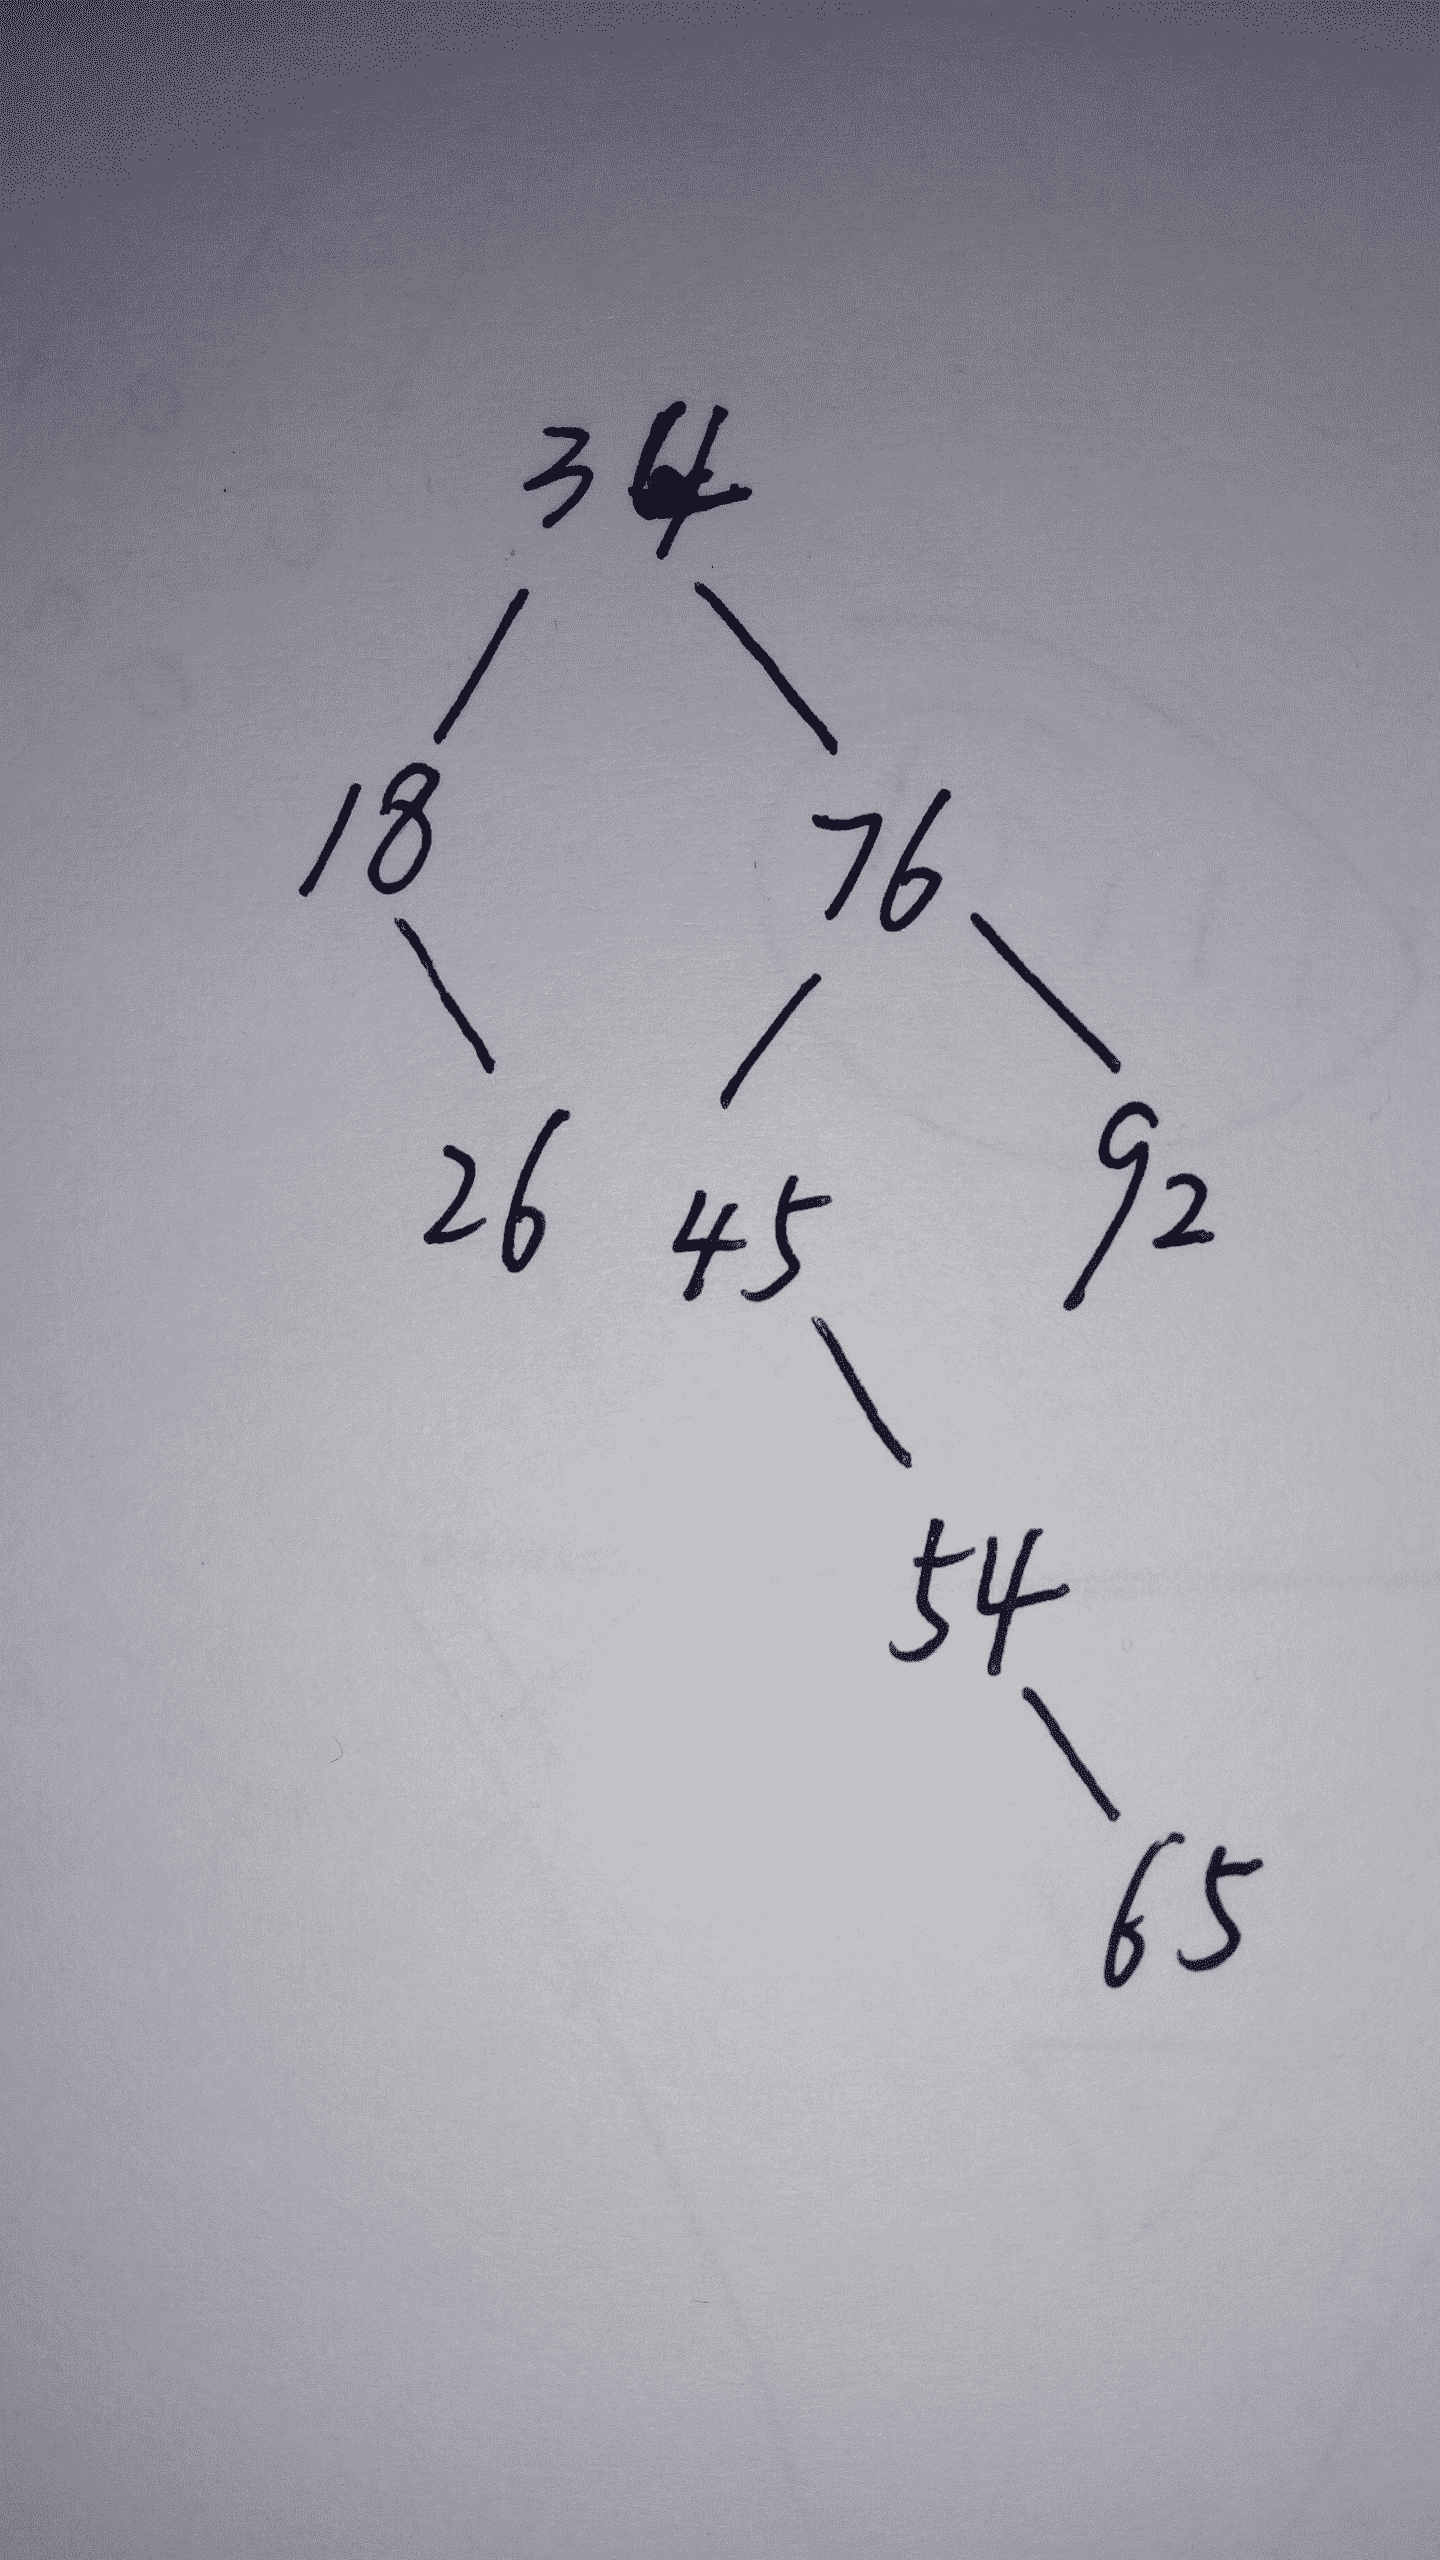 34
18 76
26 45 92
54
65